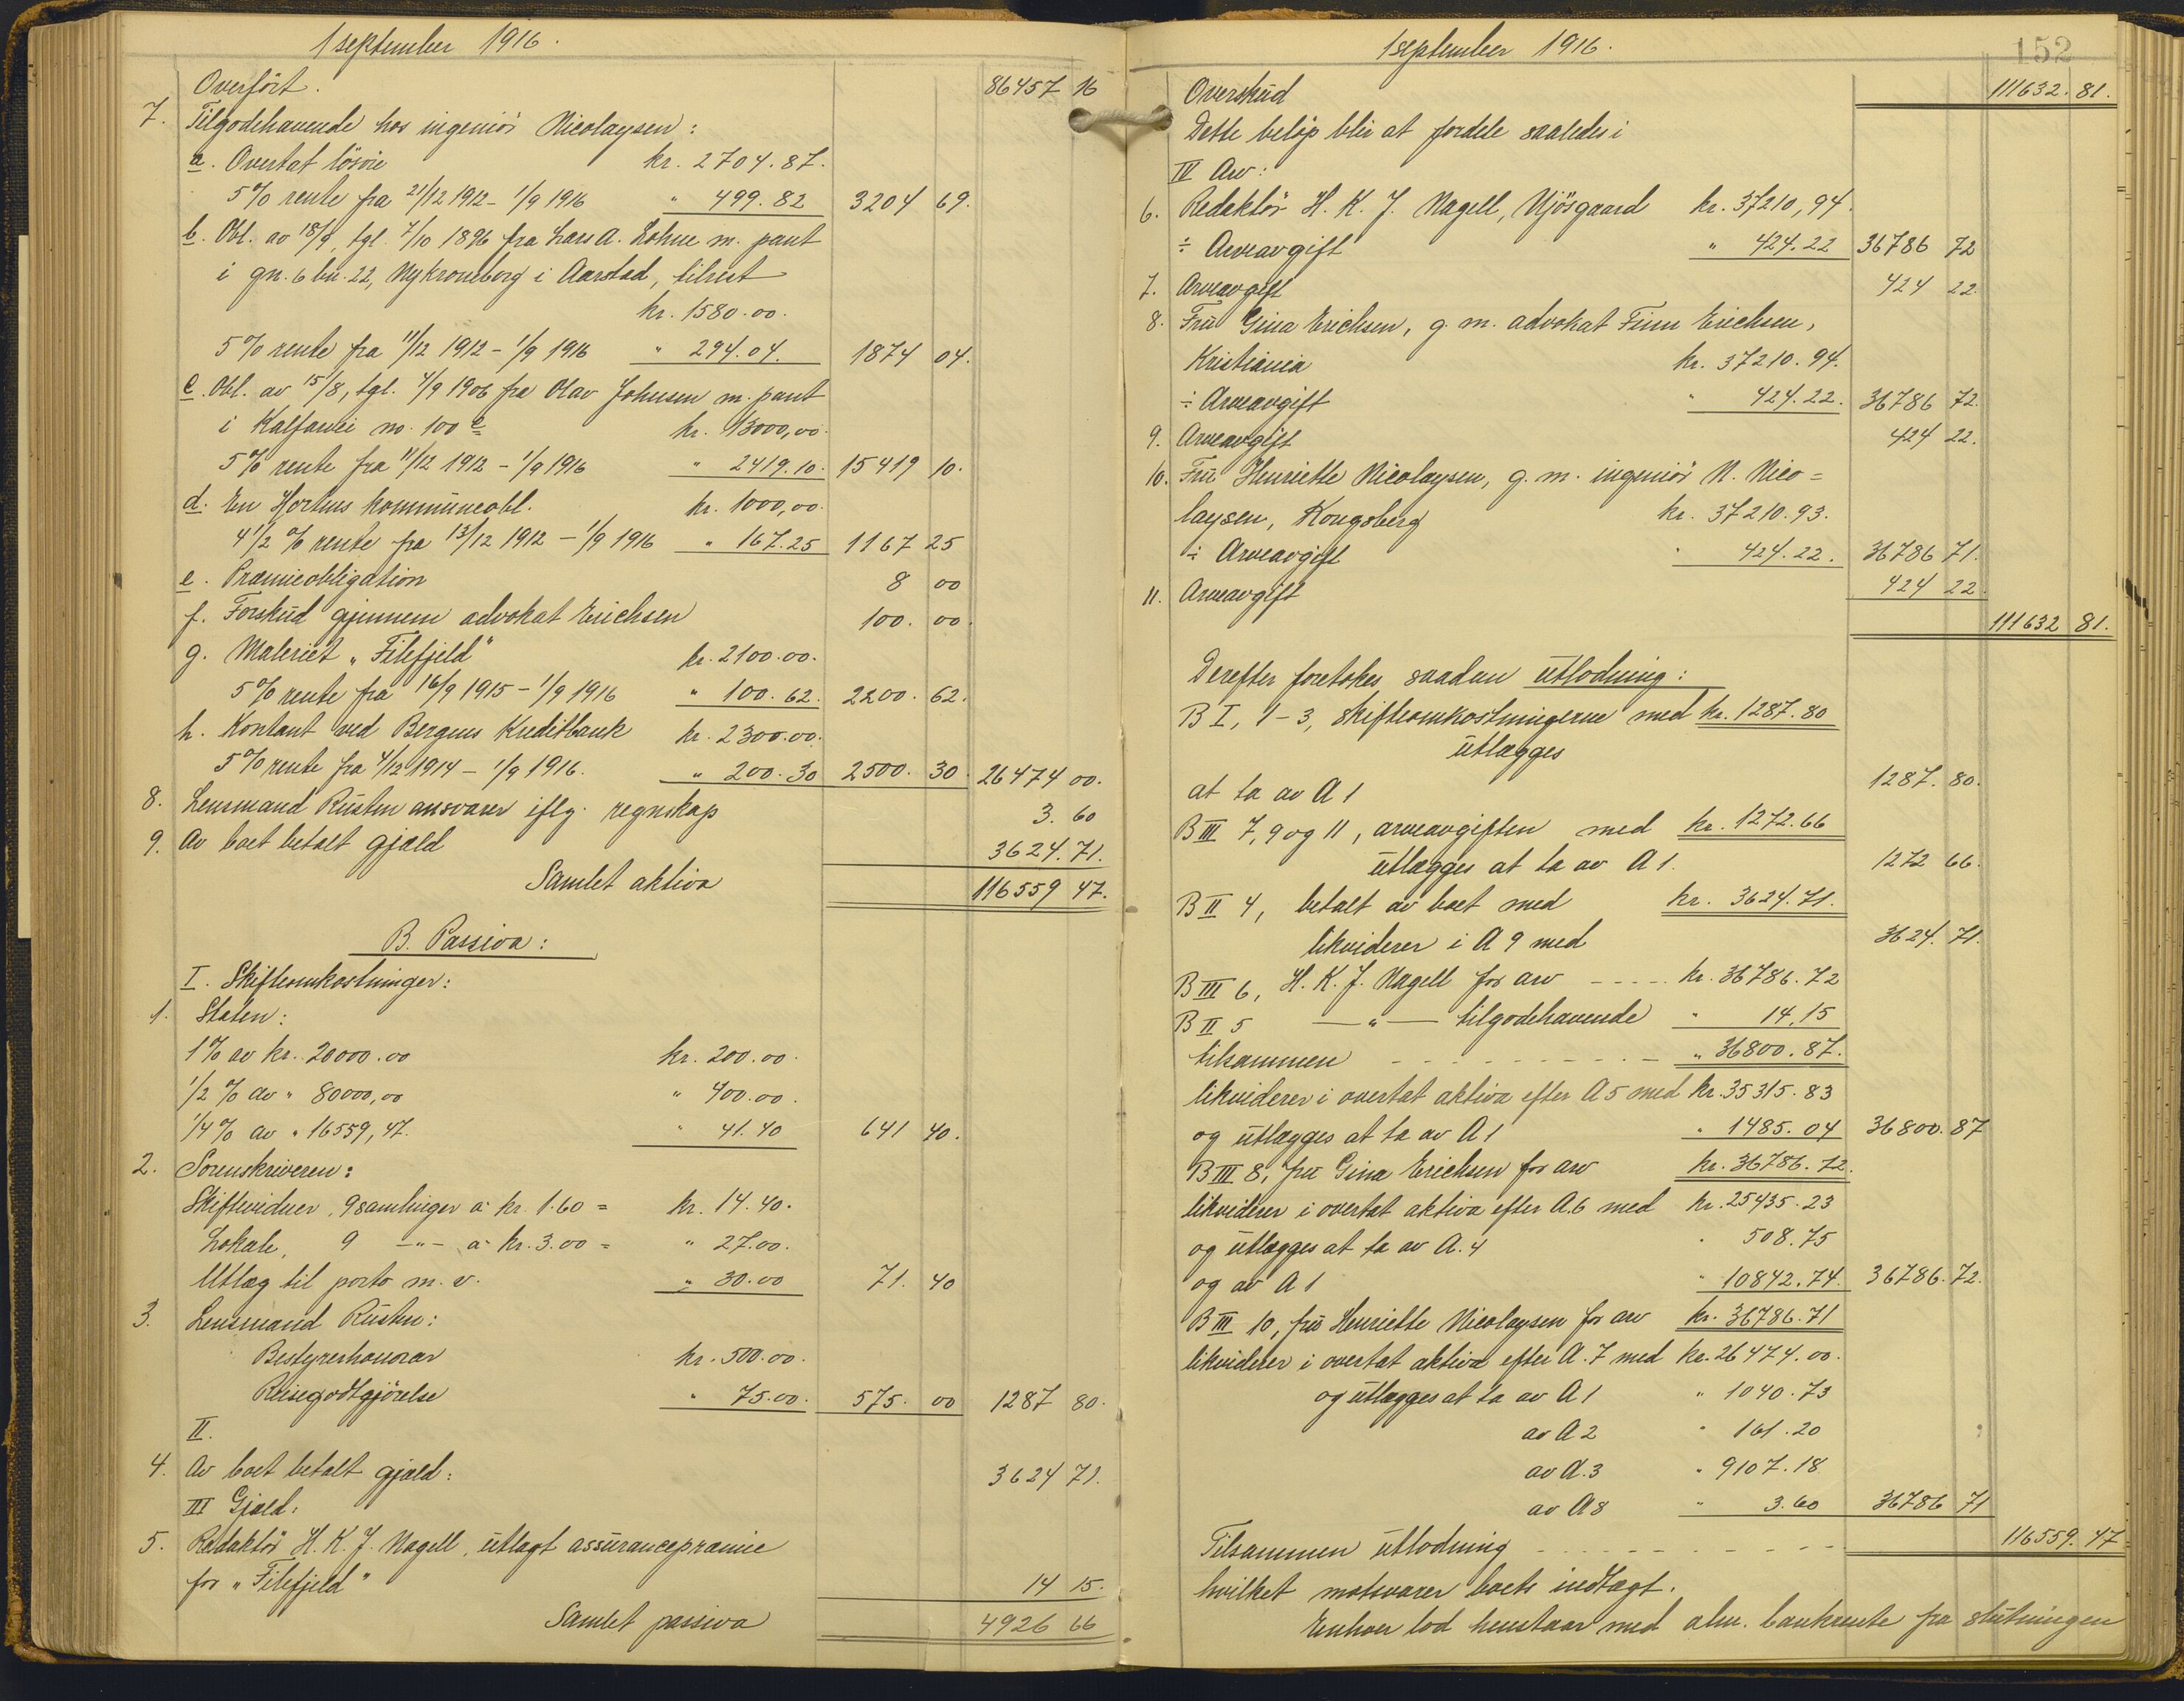 1 september 1916.
Overført. 86457 16
7. Tilgodehavende hos ingeniør Nicolaysen:
a. Overtat løsøre kr. 2704.87.
5% rente fra 21/12 1912 - 1/9 1916 " 499.82 3204 69.
b. Obl. av 18/9, tgl. 7/10 1896 fra Lars A. Lohne m. pant
i gn. 6 bn. 22, Nykroneborg i Aarstad, tilrest
kr. 1580.00.
5% rente fra 11/12 1912 - 1/9 1916 " 294.04. 1874 04.
c. Obl. av 15/8, tgl. 4/9 1906 fra Olav Johnsen m. pant
i Kalfarvei no. 100 c kr. 13000,00.
5% rente fra 11/12 1912 - 1/9 1916 " 2419.10. 15419 10.
d. En Hortens kommuneobl. kr. 1000,00.
4 1/2 % rente fra 13/12 1912 - 1/9 1916 " 167.25 1167 25
e. Præmieobligation 8 00
f. Forskud gjennem advokat Erichsen 100. 00.
g. Maleriet „Filefjeld" kr. 2100.00.
5% rente fra 16/9 1915 - 1/9 1916 " 100.62. 2200. 62.
h. Kontant ved Bergens Kreditbank kr. 2300.00.
5% rente fra 4/12 1914 - 1/9 1916. " 200.30 2500. 30. 26474 00.
8. Lensmand Rusten ansvarer iflg. regnskap 3. 60
9. Av boet betalt gjæld 3624. 71.
Samlet aktiva 116559 47.
B. Passiva:
I. Skifteomkostninger:
1. Staten:
1% av kr. 20000.00 kr. 200.00.
1/2 % av " 80000,00 " 400.00.
1/4 % av " 16559,47. " 41.40 641 40.
2. Sorenskriveren:
Skiftevidner, 9 samlinger a kr. 1.60 = kr. 14.40.
Lokale, 9 -"- a kr. 3.00 = " 27.00.
Utlæg til porto m. v. " 30.00 71. 40
3. Lensmand Rusten:
Bestyrerhonorar kr. 500.00.
Reisegodtgjørelse " 75.00. 575. 00 1287 80.
II.
4. Av boet betalt gjæld: 3624 71.
III Gjæld:
5. Redaktør H. K. J. Nagell, utlagt assurancepræmie
for „Filefjeld" 14 15.
Samlet passiva 4926 66
1 september 1916. 152
Overskud 111632. 81.
Dette beløp blir at fordele saaledes i
IV Arv:
6. Redaktør H. K. J. Nagell, Mjøsgaard kr. 37210,94.
÷ Arveavgift " 424.22 36786 72
7. Arveavgift 424 22.
8. Fru Gina Erichsen, g. m. advokat Finn Erichsen,
Kristiania kr. 37210.94.
÷ Arveavgift " 424.22. 36786 72.
9. Arveavgift 424 22.
10. Fru Henriette Nicolaysen, g. m. ingeniør N. Nico=
laysen, Kongsberg kr. 37210.93.
÷ Arveavgift " 424.22. 36786 71.
11. Arveavgift 424 22.
111632 81.
Derefter foretokes saadan utlodning:
B I, 1-3, skifteomkostningerne med kr. 1287.80
utlægges
at ta av A 1 1287. 80.
B III 7, 9 og 11, arveavgiften med kr. 1272.66
utlægges at ta av A 1. 1272 66.
B II 4, betalt av boet med kr. 3624.71.
likviderer i A 9 med 3624. 71.
B III 6, H. K. J. Nagell for arv ---- kr. 36786.72
B II 5 —"— tilgodehavende " 14,15
tilsammen - - - - - - - - " 36800.87.
likviderer i overtat aktiva efter A 5 med kr. 35315.83
og utlægges at ta av A 1 " 1485.04 36800. 87
B III 8, fru Gina Erichsen for arv kr. 36786.72.
likviderer i overtat aktiva efter A. 6 med kr. 25435.23
og utlægges at ta av A. 4 " 508.75
og av A 1 " 10842.74. 36786. 72.
B III 10, fru Henriette Nicolaysen for arv kr. 36786.71
likviderer i overtat aktiva efter A. 7 med kr. 26474.00.
og utlægges at ta av A 1 " 1040.73
av A 2 " 161.20
av A. 3 " 9107.18
av A 8 " 3.60 36786 71
Tilsammen utlodning - - - - - - - - 116559. 47
hvilket motsvarer boets indtægt.
Enhver lod henstaar med alm. bankrente fra slutningen